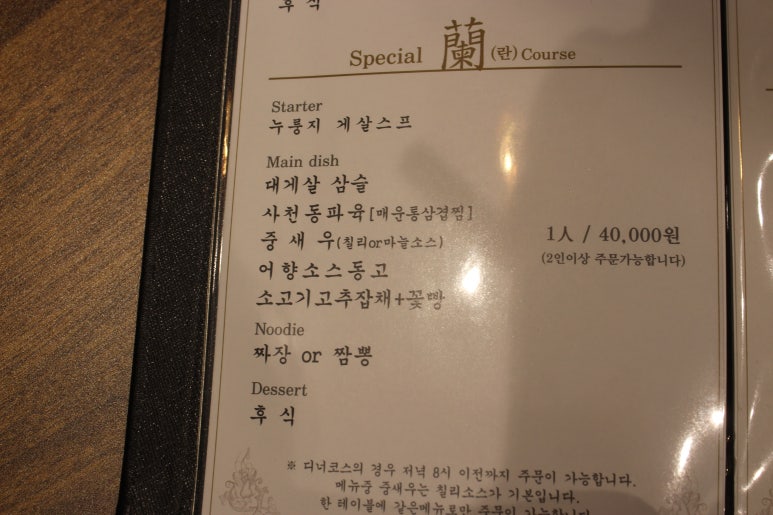 후 식
Special 蘭 (란) Course
Starter
누룽지 게살스프
Main dish
대게살 삼슬
사천동파육[매운통삼겹찜]
중 새 우(칠리or마늘소스)
1人 / 40,000원
(2인이상 주문가능합니다)
어향소스동고
소고기고추잡채+꽃빵
Noodie
짜장 or 짬뽕
Dessert
후 식
※ 디너코스의 경우 저녁 8시 이전까지 주문이 가능합니다.
메뉴중 중새우는 칠리소스가 기본입니다.
한 테이블에 같은메뉴로만 주문이 가능합니다.